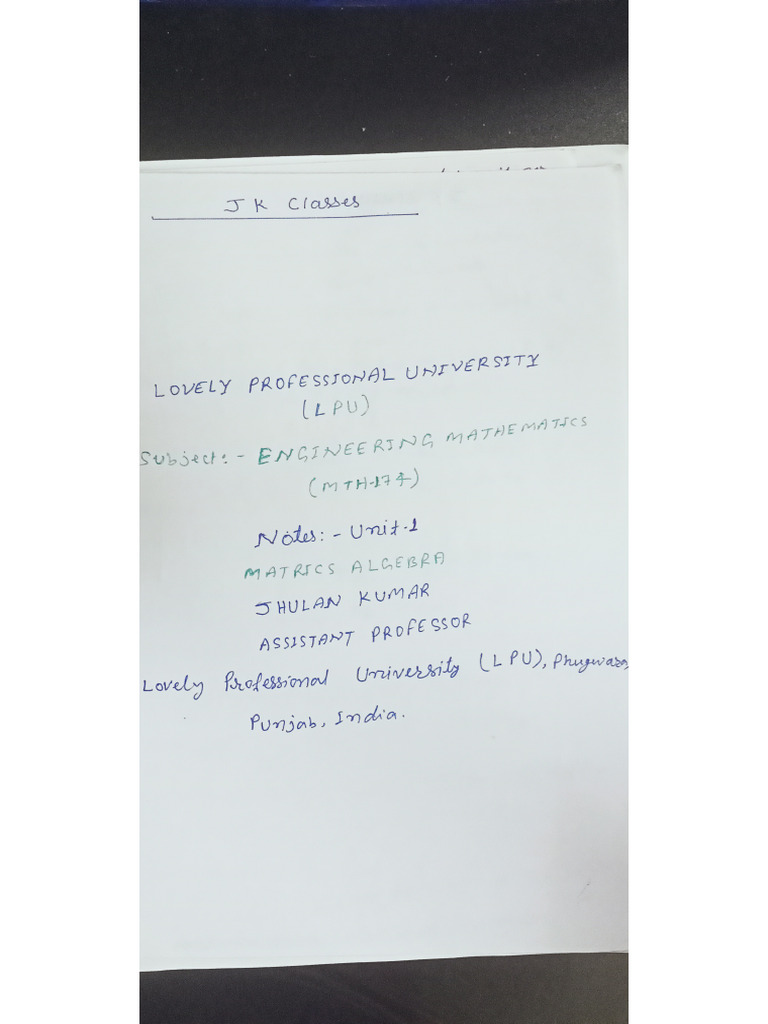 J K Classes
LOVELY PROFESSIONAL UNIVERSITY
(LPU)
Subject:- ENGINEERING MATHEMATICS
(MTH-174)
Notes:- Unit-1
MATRICS ALGEBRA
JHULAN KUMAR
ASSISTANT PROFESSOR
Lovely Professional University (LPU), Phugwara,
Punjab, India.